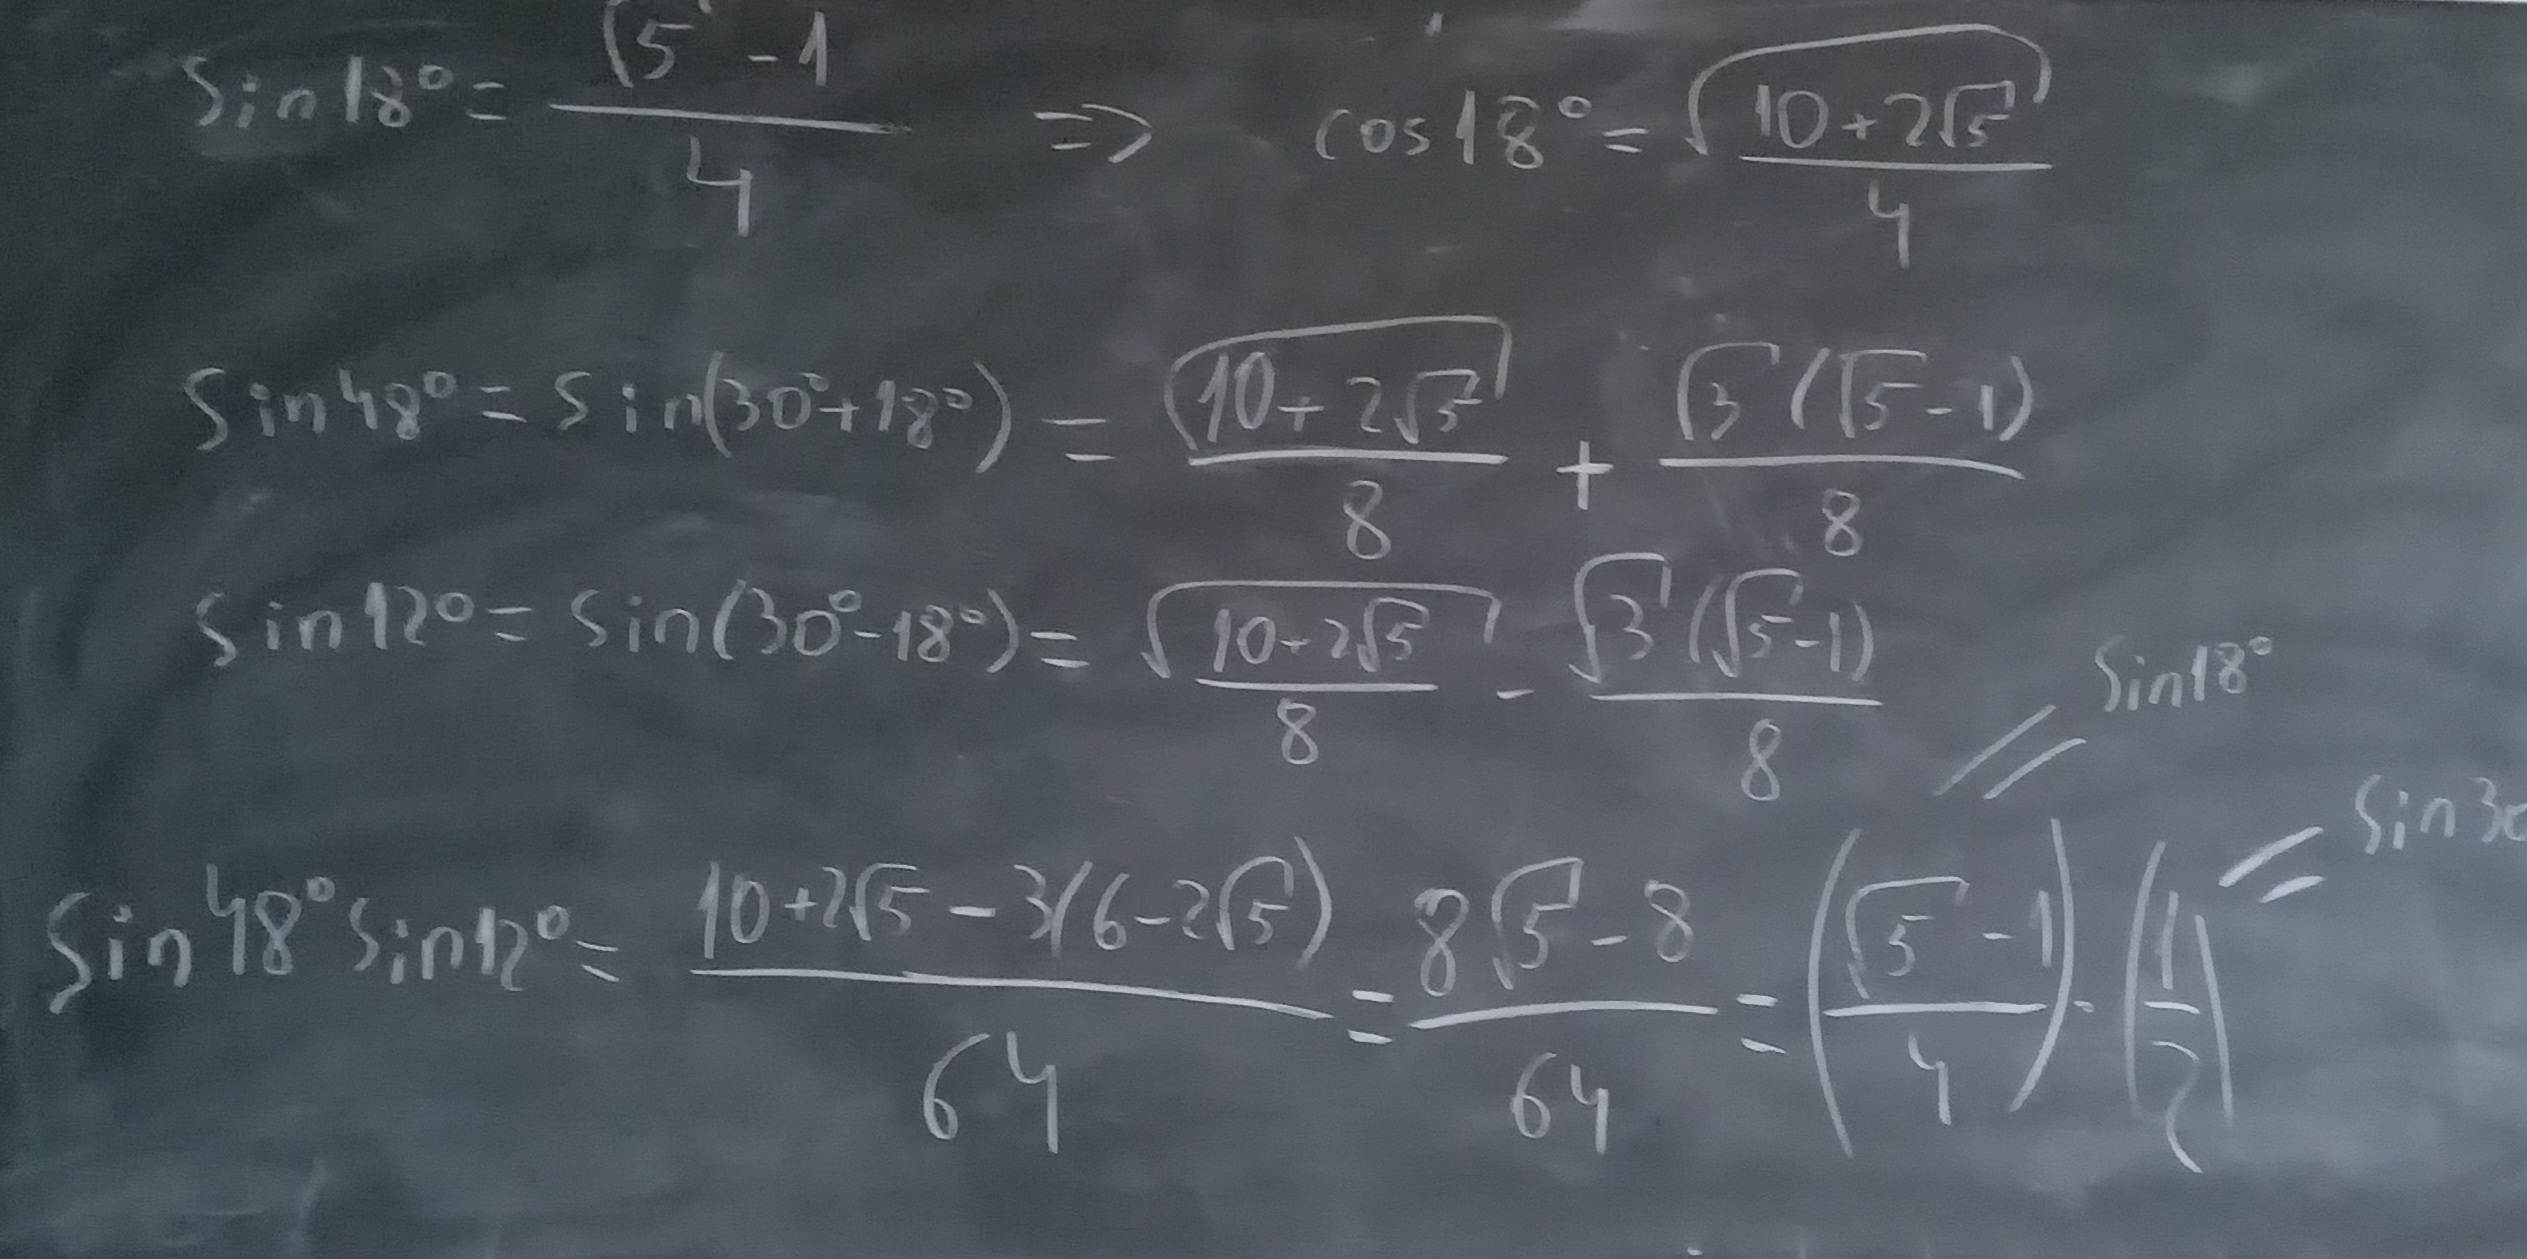 sin18° = (√5 - 1)/4 ⇒ cos18° = √(10+2√5)/4
Sin48° = Sin(30°+18°) = √(10+2√5)/8 + √3(√5-1)/8
Sin12° = Sin(30°-18°) = √(10+2√5)/8 - √3(√5-1)/8
Sin18°
Sin30
Sin48° Sin12° = (10+2√5 - 3(6-2√5))/64 = (8√5-8)/64 = ((√5-1)/4)·(1/2)